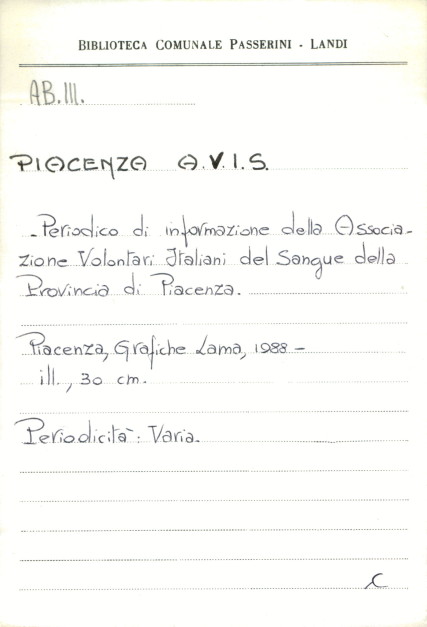 BIBLIOTECA COMUNALE PASSERINI - LANDI
AB.III.
PIACENZA A.V.I.S.
- Periodico di informazione della Associa-
zione Volontari Italiani del Sangue della
Provincia di Piacenza.
Piacenza, Grafiche Lama, 1988 -
ill., 30 cm.
Periodicità: Varia.
C